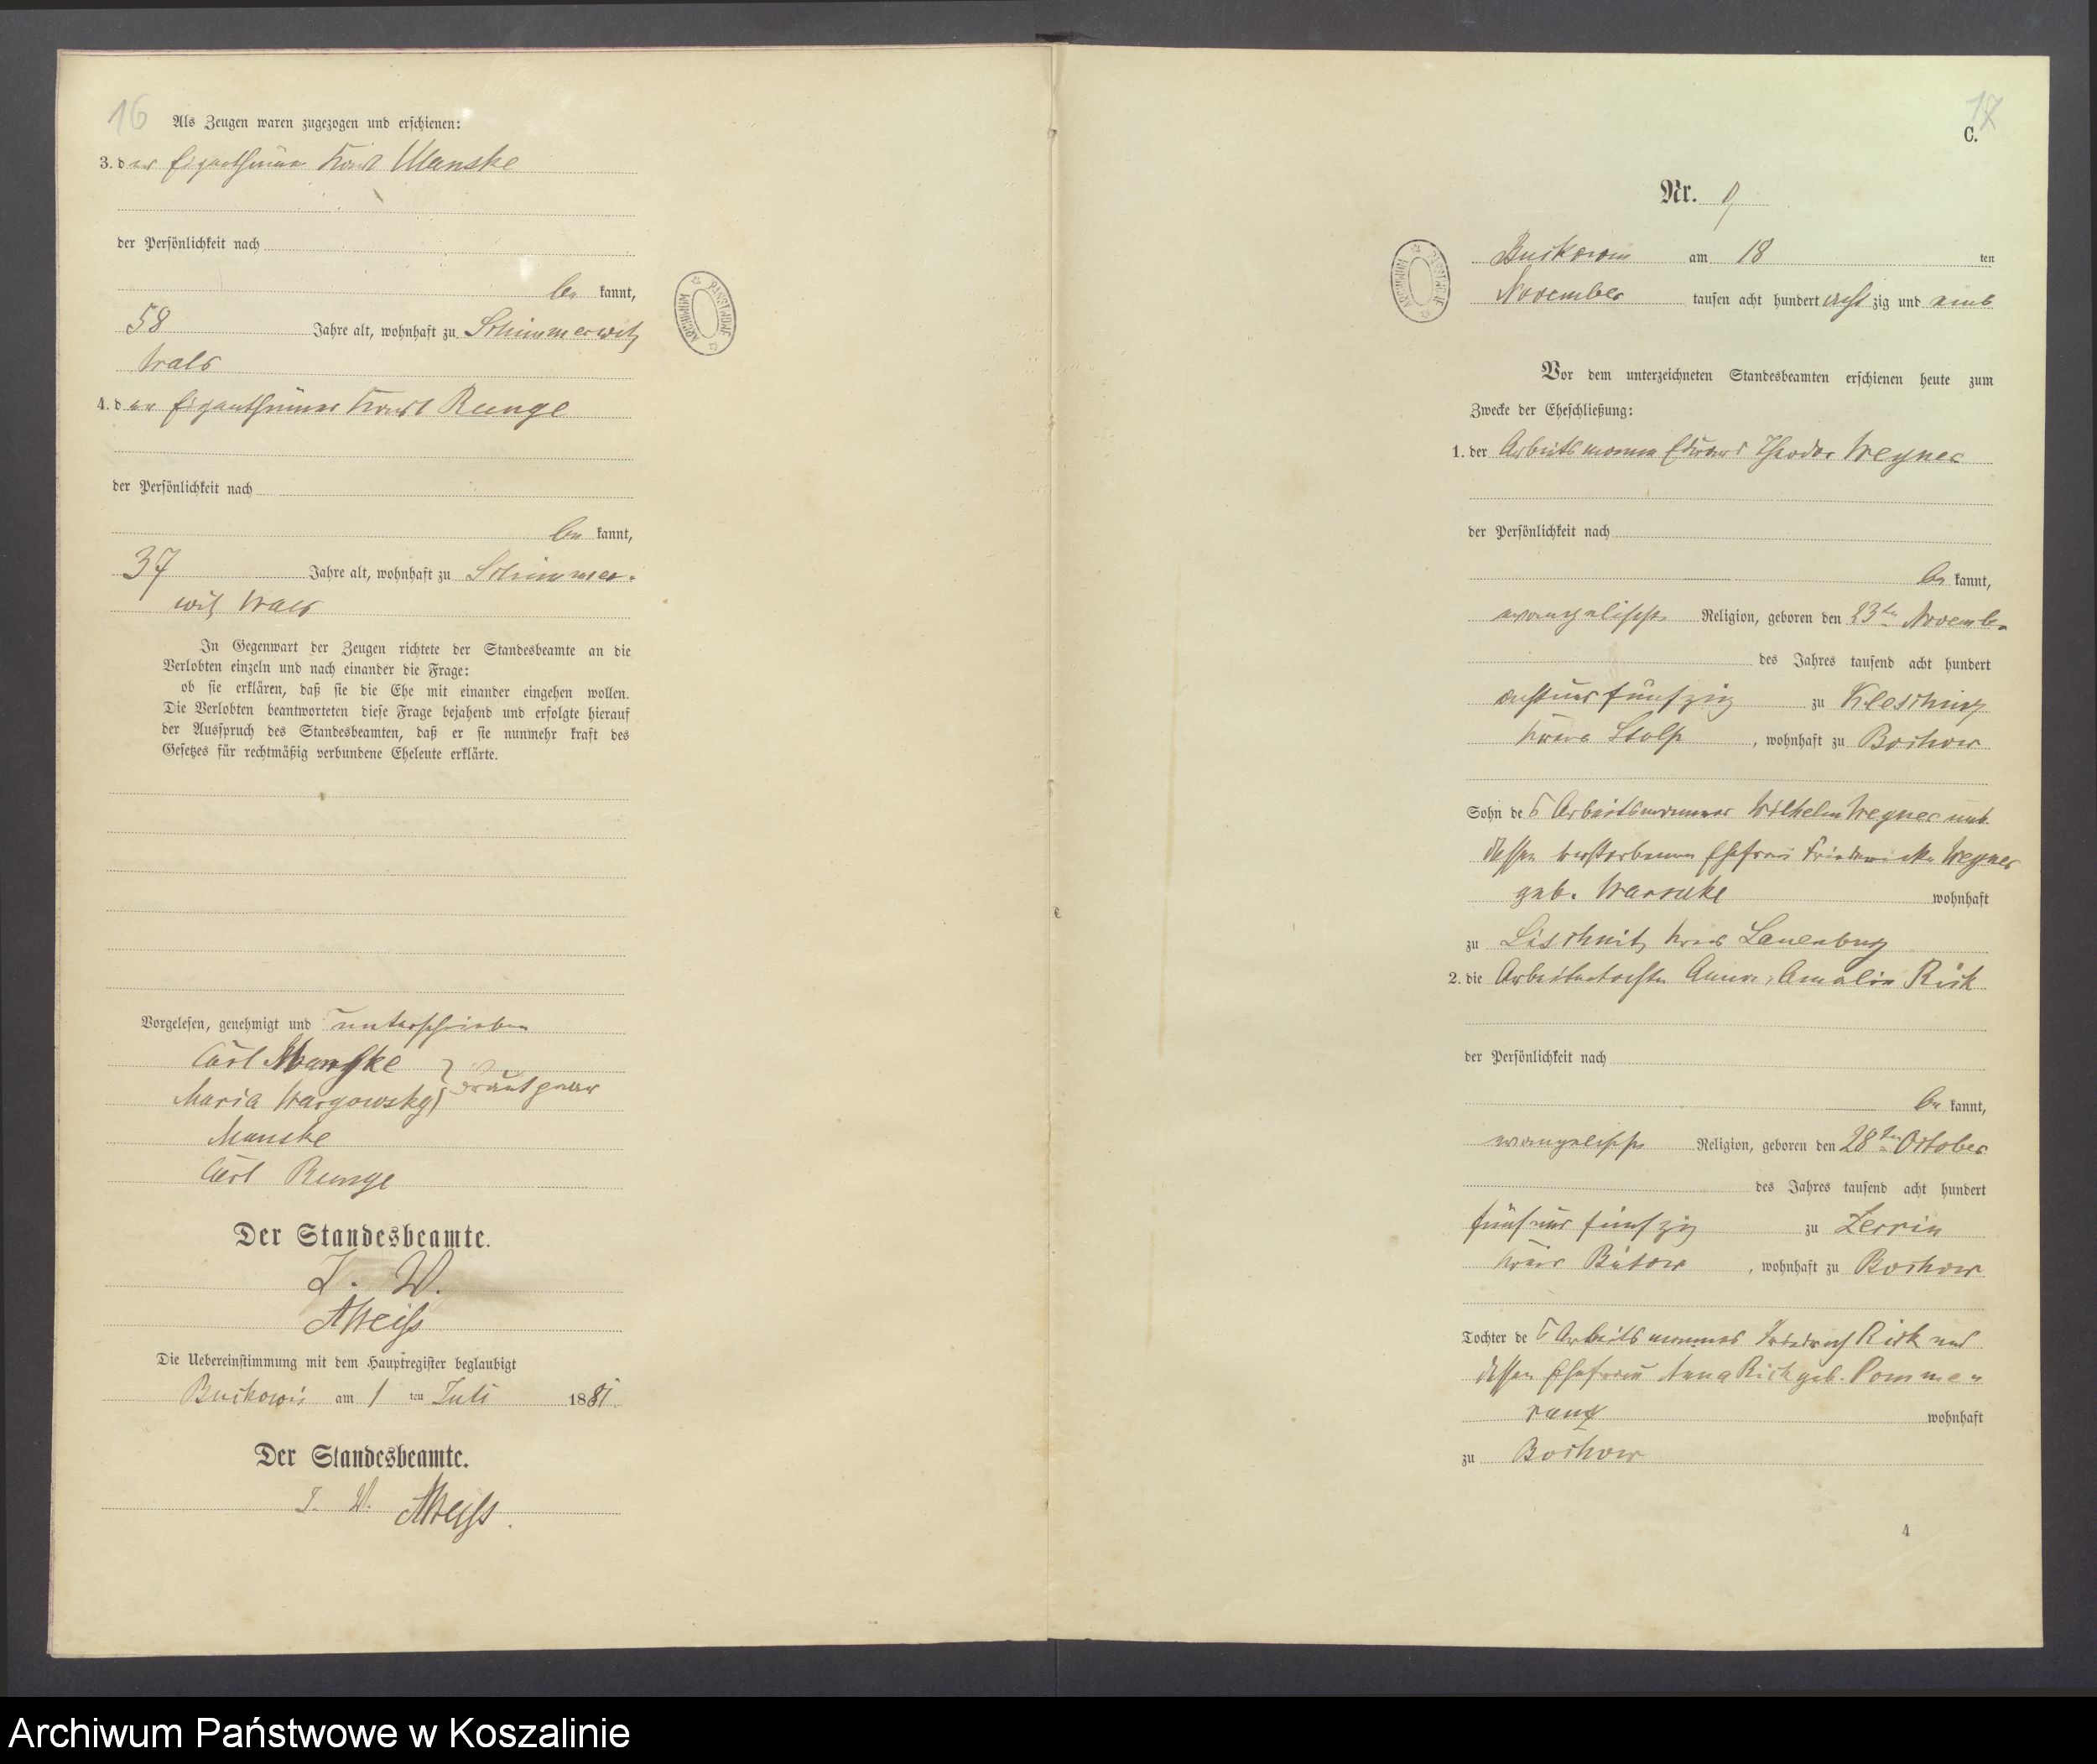 16
Als Zeugen waren zugezogen und erschienen:
3. der Eigenthümer Karl Manske
der Persönlichkeit nach
be kannt,
58 Jahre alt, wohnhaft zu Schimmerwitz
Wald
4. der Eigenthümer Karl Runge
der Persönlichkeit nach
be kannt,
37 Jahre alt, wohnhaft zu Schimmer-
witz Wald
In Gegenwart der Zeugen richtete der Standesbeamte an die
Verlobten einzeln und nach einander die Frage:
ob sie erklären, daß sie die Ehe mit einander eingehen wollen.
Die Verlobten beantworteten diese Frage bejahend und erfolgte hierauf
der Ausspruch des Standesbeamten, daß er sie nunmehr kraft des
Gesetzes für rechtmäßig verbundene Eheleute erklärte.
Vorgelesen, genehmigt und unterschrieben
Carl Manske
Maria Wargowsky } Brautpaar
Manske
Carl Runge
Der Standesbeamte.
I. V.
AWeiss
Die Uebereinstimmung mit dem Hauptregister beglaubigt
Buckowin am 1 ten Juli 1881.
Der Standesbeamte.
I. V. AWeiss.
ARCHIWUM PAŃSTWOWE
17
C.
Nr. 9
Buckowin am 18 ten
November tausen acht hundert acht zig und eins
Vor dem unterzeichneten Standesbeamten erschienen heute zum
Zwecke der Eheschließung:
1. der Arbeitsmann Eduard Theodor Wegner
der Persönlichkeit nach
be kannt,
evangelischer Religion, geboren den 23ten Novembe
des Jahres tausend acht hundert
achtundfünfzig zu Kleschinz
Kreis Stolp, wohnhaft zu Bochow
Sohn des Arbeitsmannes Wilhelm Wegner und
dessen verstorbenen Ehefrau Friedericke Wegner
geb. Warnke wohnhaft
zu Lischnitz Kreis Lauenburg
2. die Arbeitertochter Anna, Amalie Rick
der Persönlichkeit nach
be kannt,
evangelischer Religion, geboren den 28ten October
des Jahres tausend acht hundert
fünfundfünfzig zu Zerrin
Kreis Bütow, wohnhaft zu Bochow
Tochter des Arbeitsmannes Friedrich Rick und
dessen Ehefrau Anna Rick geb. Pomme
ranz wohnhaft
zu Bochow
4
ARCHIWUM PAŃSTWOWE
Archiwum Państwowe w Koszalinie